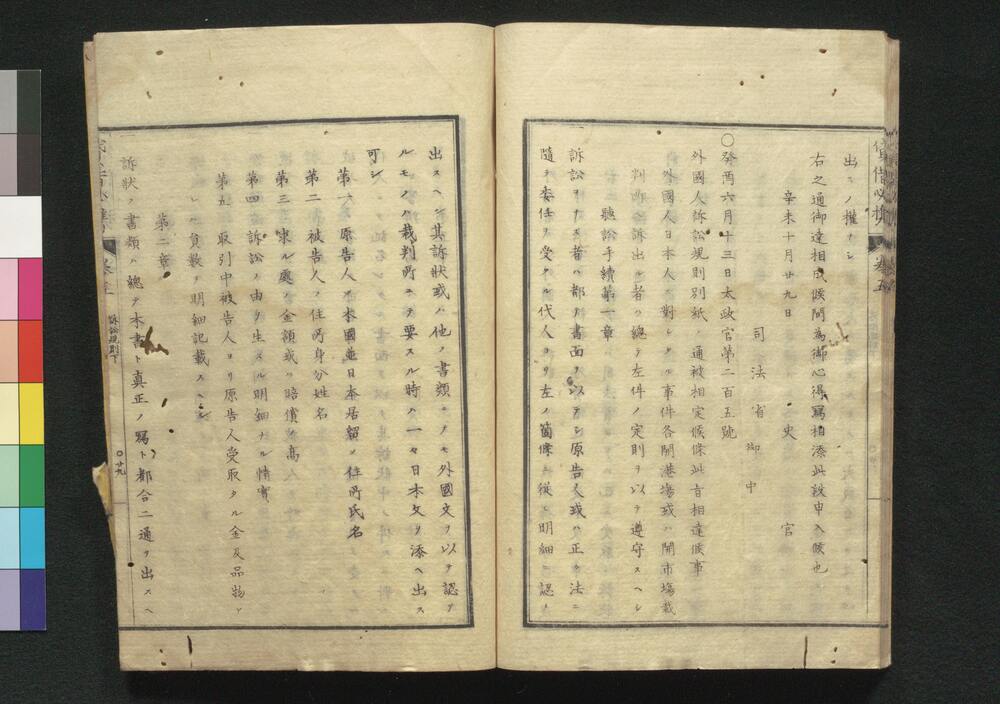 出スノ權ナシ
右之通御達相成候間為御心得寫相添此段申入候也
辛未十月廿九日 史官
司法省御中
〇癸酉六月十三日太政官第二百五號
外國人訴訟規則別紙ノ通被相定候條此旨相達候事
外國人日本人ニ對シタル事件各開港塲或ハ開市塲裁
判所ヘ訴訟出ル者ハ總テ左件ノ定則ヲ以テ遵守スヘシ
聽訟手續第一章
訴訟ヲナス者ハ都テ書面ヲ以テシ原告人或ハ正ク法ニ
隨テ委任ヲ受タル代人ヨリ左ノ箇條ニ從ヒ明細ニ認メ
出スヘシ其訴狀或ハ他ノ書類ニテモ外國文ヲ以テ認タ
ルモノハ裁判所ニテ要スル時ハ一々日本文ヲ添ヘ出ス
可シ
第一 原告人ノ本國並日本居留ノ住所氏名
第二 被告人ノ住所身分姓名
第三 求ル處ノ金額或ハ賠償ノ高
第四 訴訟ノ由テ生スル明細ナル情實
第五 取引中被告人ヨリ原告人受取タル金及品物ア
レハ員數ヲ明細記載スヘシ
第二章
訴狀ノ書類ハ總テ本書ト真正ノ寫ト都合二通ヲ出スヘ
訴訟規則下
〇廿九